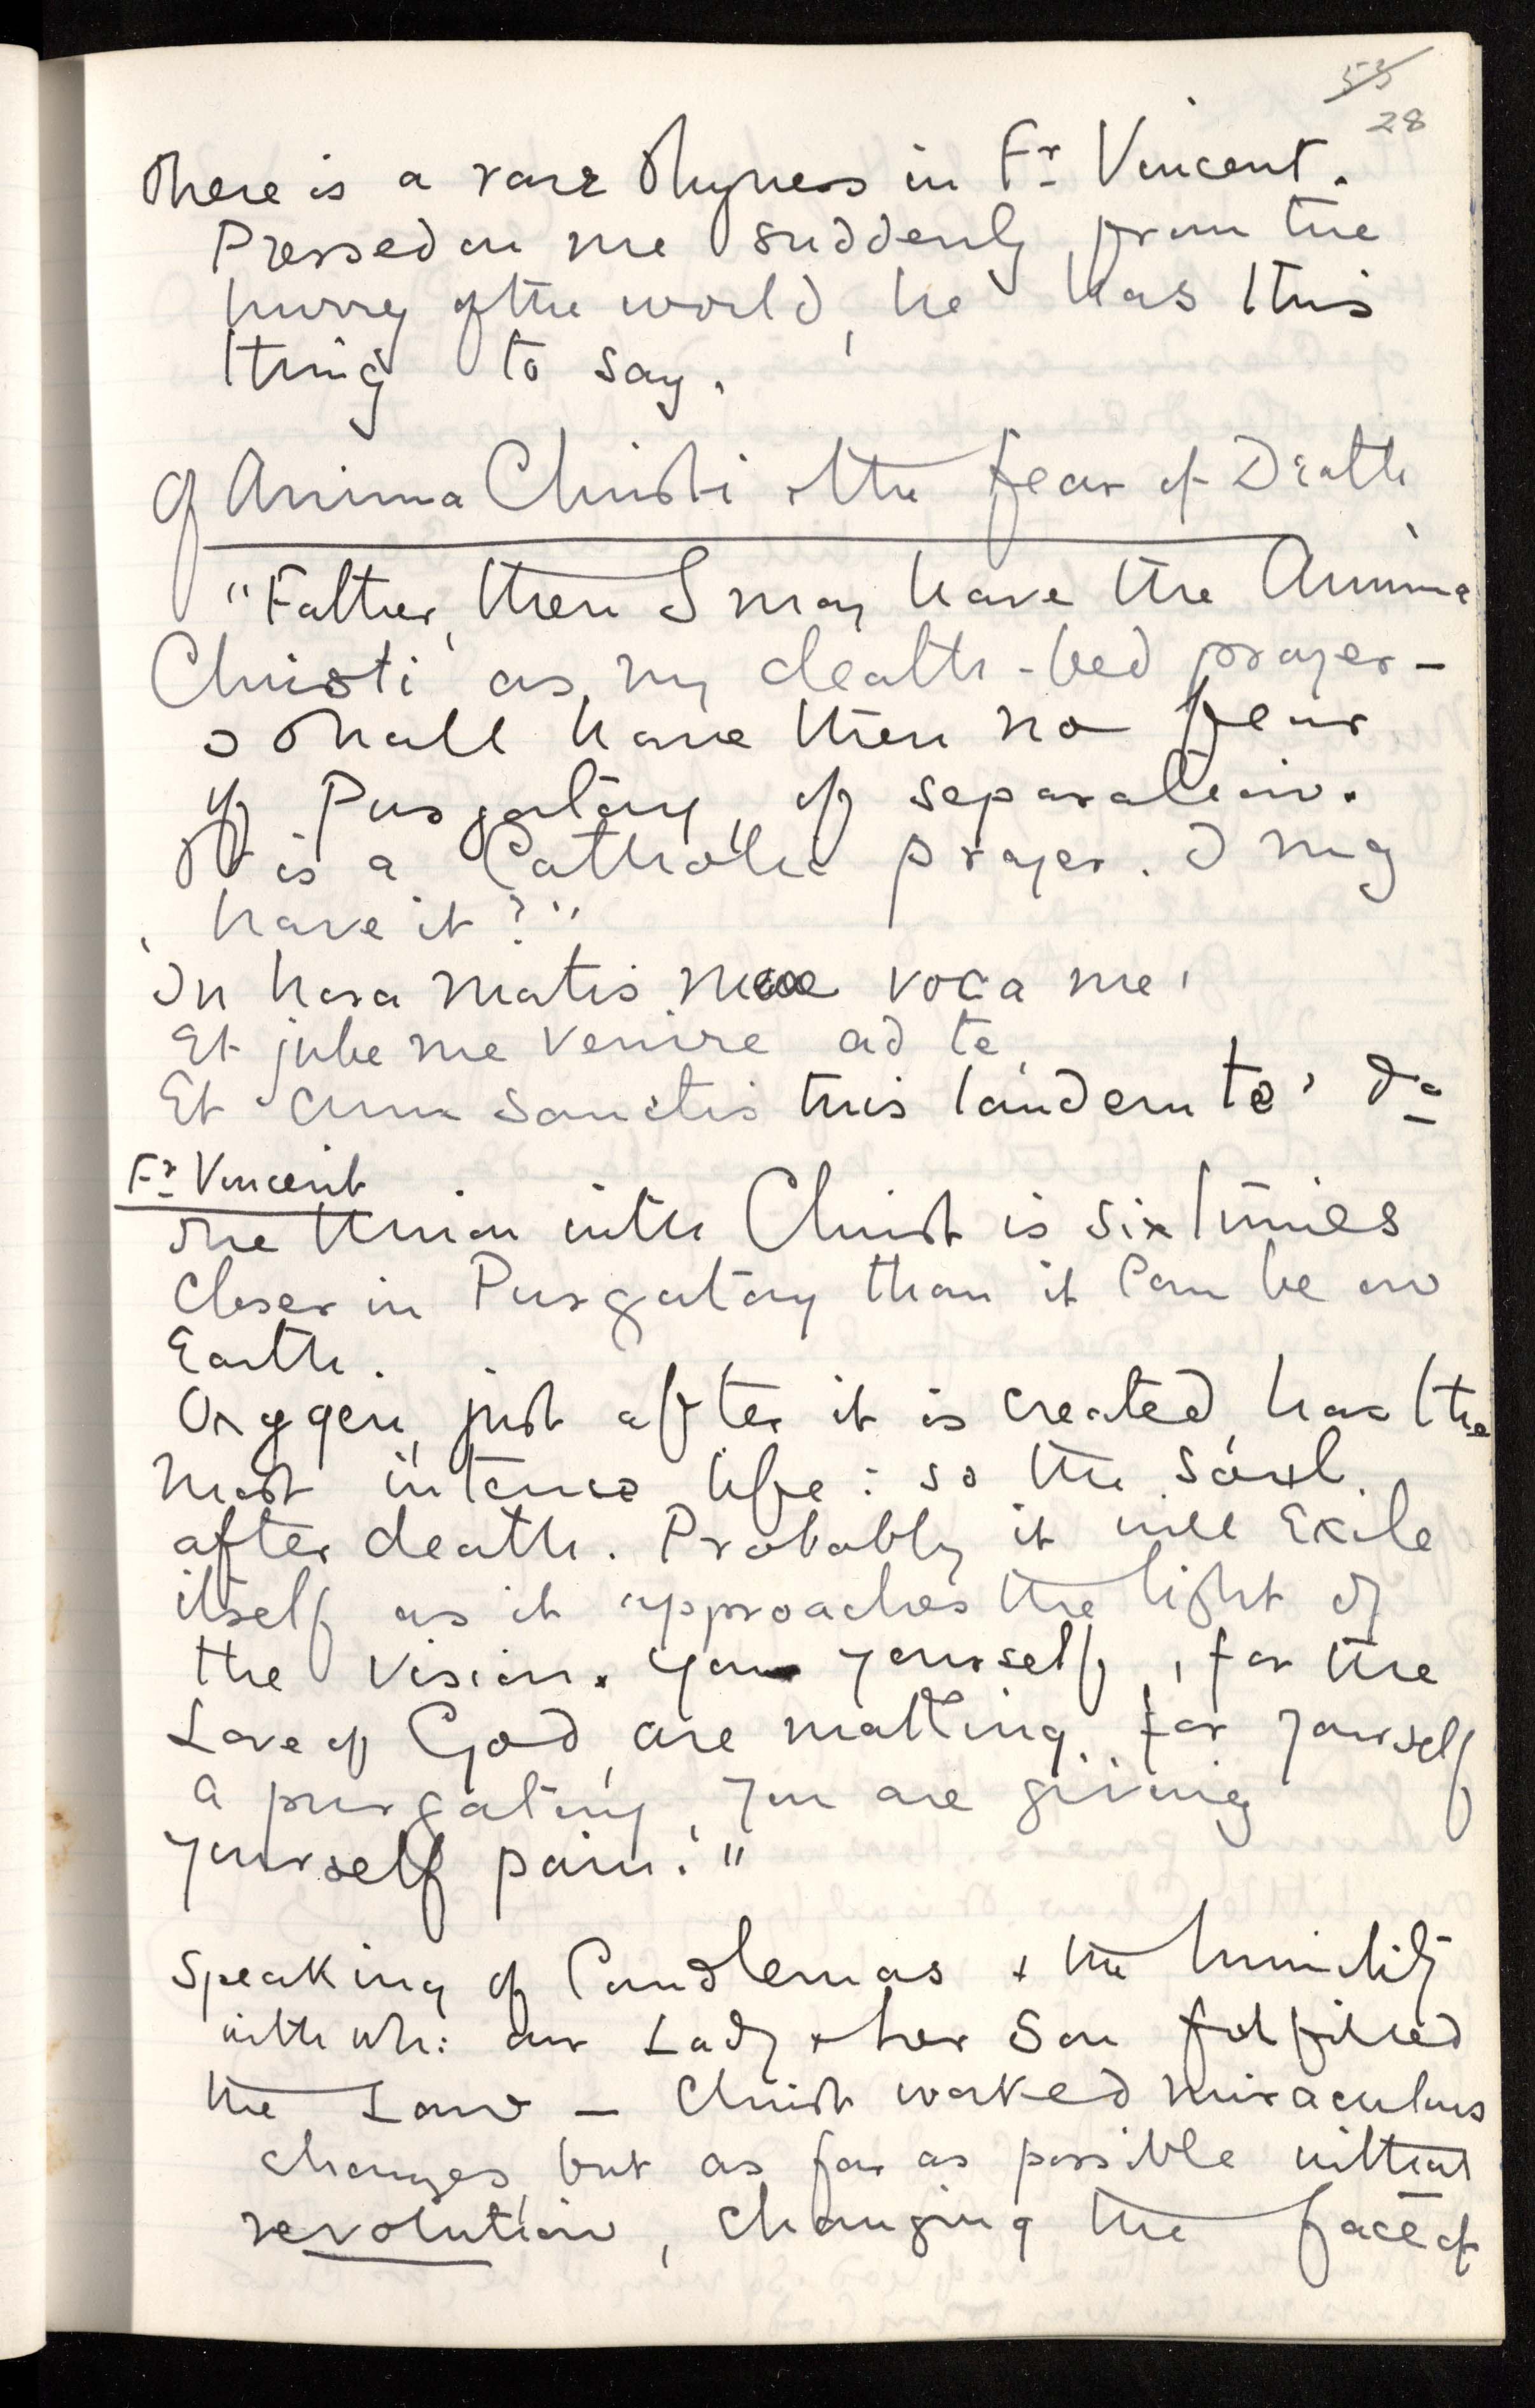 53
28
There is a rare Shyness in Fr Vincent.
Pressed on me suddenly from the
hurry of the world, he has this
thing to say.
Of Anima Christi & the fear of Death
"Father, then I may have the Anima
Christi as my death-bed prayer –
I shall have then no fear
of Purgatory, of separation.
It is a Catholic prayer. I may
have it?"
'In hora mortis meae voca me,
Et jube me venire ad te,
Et cum sanctis tuis laudem te'
Fr Vincent
The Union with Christ is six times
closer in Purgatory than it can be on
Earth.
Oxygen, just after it is created, has the
most intense life: so the soul
after death. Probably it will Exile
itself as it approaches the light of
the Vision. You yourself, for the
Love of God, are making for yourself
a purgatory, you are giving
yourself pain."
Speaking of Candlemas & the humility
with wh: our Lady & her Son fulfilled
the Law – Christ worked miraculous
changes, but as far as possible without
revolution, changing the face of